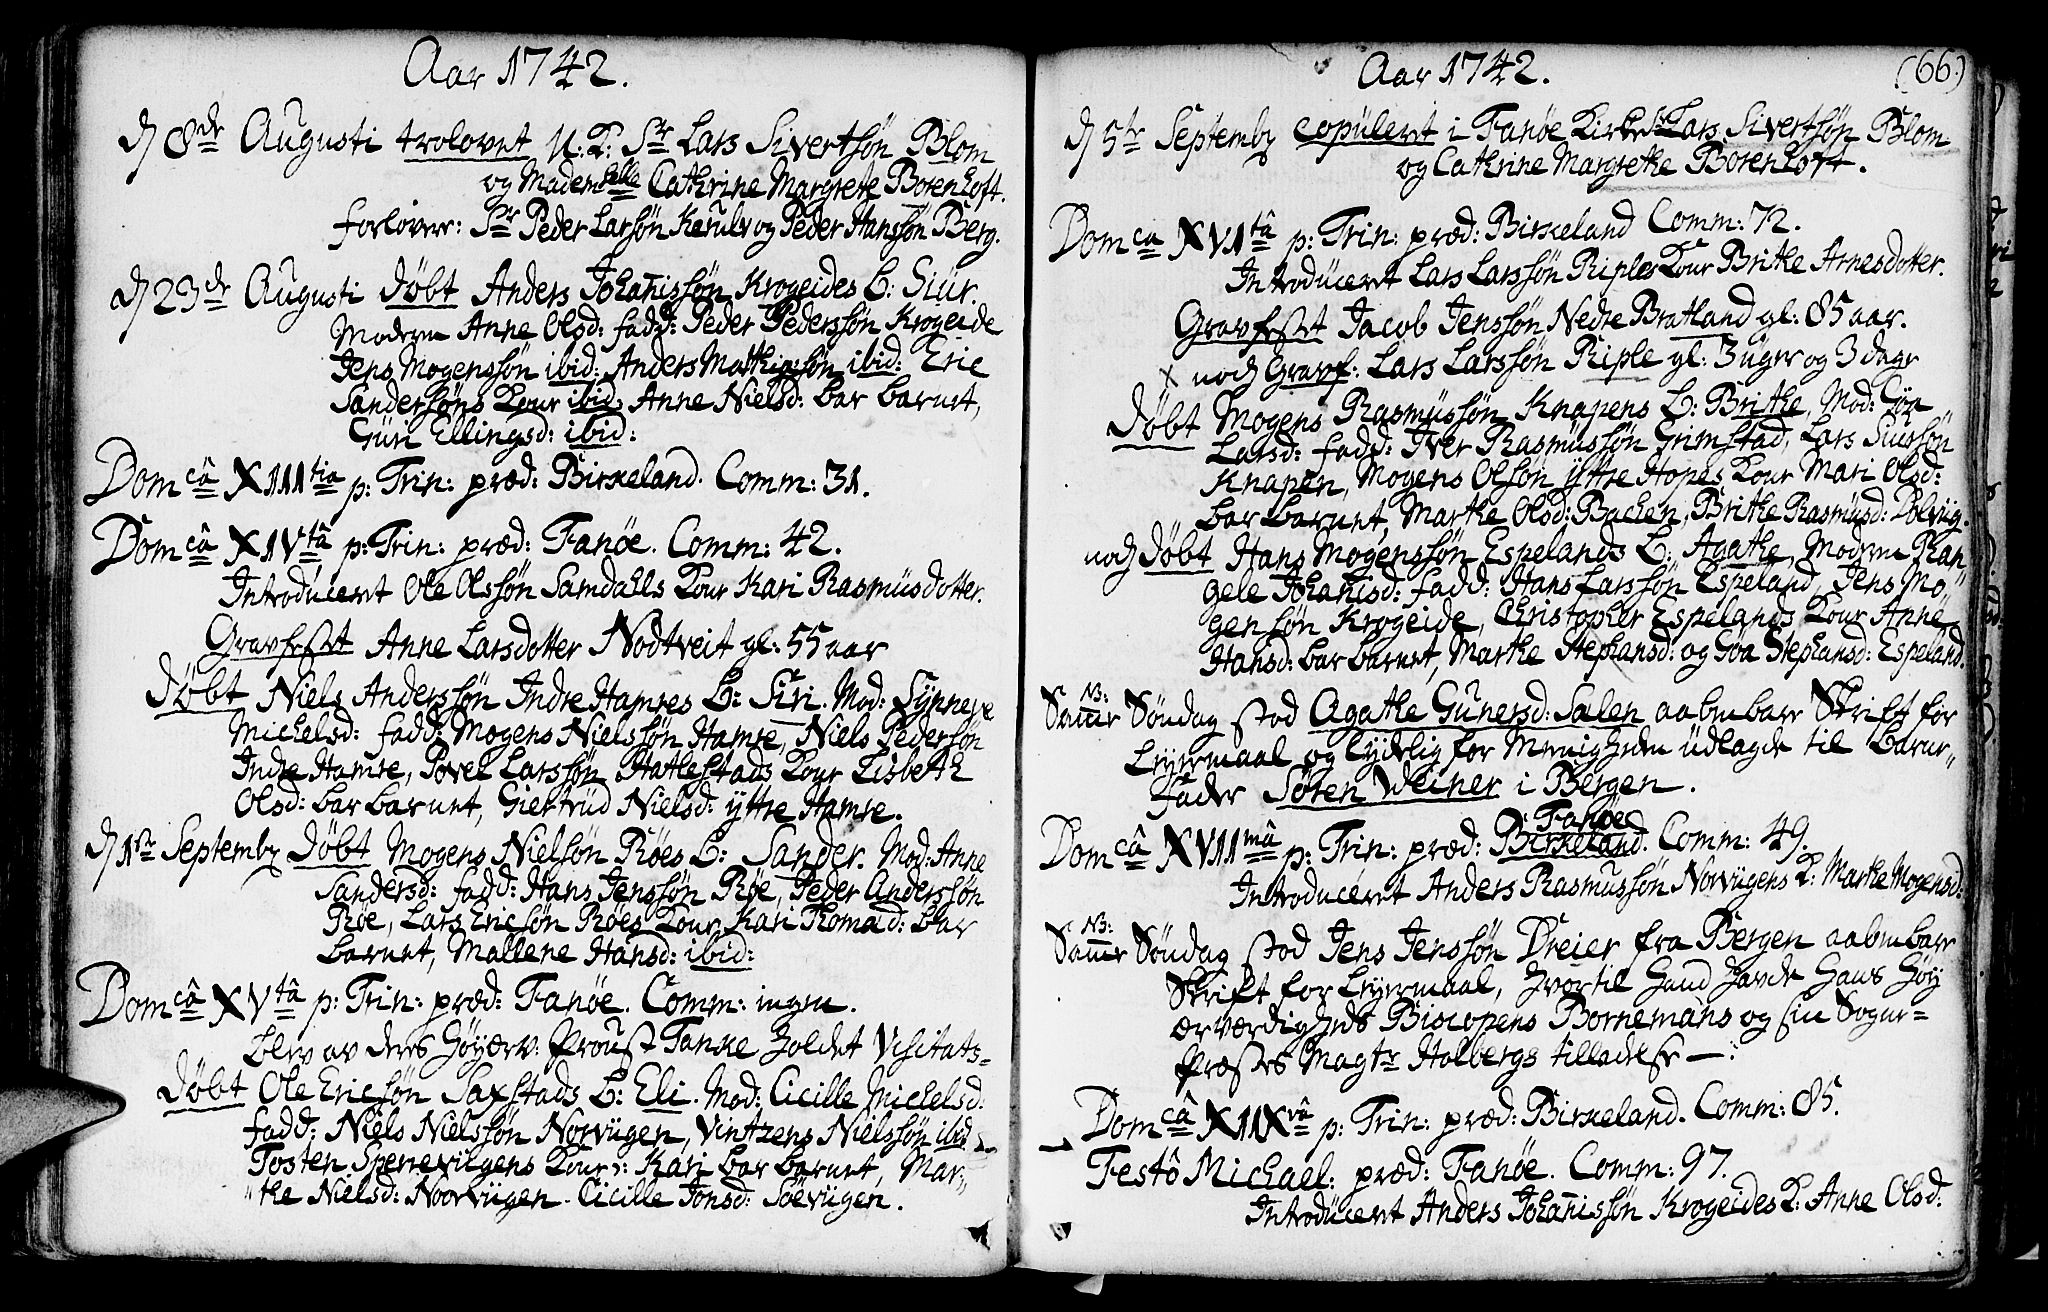 Aar 1742.
d 8de Augusti trolovet U. K: Sr Lars Sivertsøn Blom
og Mademselle Cathrine Margrete Botenhoft.
forlover: Sr Peder Larsøn Kerulv og Peder Hanssøn Berg.
d 23de Augusti døbt Anders Johanissøn Krogeides b: Siur.
Modern Anne Olsd: fadd: Peder Pederssøn Krogeide
Jens Mogenssøn ibid: Anders Mathiassøn ibid: Eric
Sandersøns Kone ibid: Anne Nielsd: bar barnet,
Guri Ellingsd: ibid:
Domcâ XIIItia p: Trin: præd: Birkeland. Comm: 31.
Domcâ XIVtâ p: Trin: præd: Fanøe. Comm: 42.
Introduceret Ole Olssøn Samdahls Kone Kari Rasmusdotter.
Gravfest Anne Larsdotter Nodtveit gl: 55 aar
Døbt Niels Anderssøn Indre Hamres b: Siri. Mod: Synneve
Michelsd: fadd: Mogens Nielssøn Hamre, Niels Pedersøn
Indre Hamre, Povel Larssøn Hatlestads Kone Lisbeth
Olsd: bar barnet, Giertrud Nielsd: yttre Hamre.
d 1ste Septembr døbt Mogens Nielsøn Røes b: Sander. Mod: Anne
Sandersd: fadd: Hans Jenssøn Røe, Peder Anderssøn
Røe, Lars Ericsøn Røes Kone Kari Thomad: bar
barnet, Mallene Hansd: ibid:
Domcâ XVtâ p: Trin: præd: Fanøe. Comm: ingen.
blev av deres Høyærv: Proust Fanke holdet Visitats-
Døbt Ole Ericsøn Saxstads b: Eli. Mod: Cicille Michelsd:
fadd: Niels Nielssøn Norvügen, Vintzens Nielssøn ibid
Tosten Sperrevilgens Kone: Kari bar barnet, Mar-
the Nielsd: Noorvügen. Cicille Jonsd: Søevügen.
Aar 1742. (66.)
d 5te Septembr copuleret i Fanøe Kirke Sr Lars Sivertsøn Blom
og Cathrine Margrethe Botenhoft.
Domca XVItâ p: Trin: præd: Birkeland Comm: 72.
Introduceret Lars Larssøn Riples Kone Brithe Arnesdotter.
Gravfest Jacob Jenssøn Nedre Bratland gl: 85 aar.
x nok Gravf: Lars Larssøn Riple gl: 3 uger og 3 dage
Døbt Mogens Rasmussøn Knapens b: Brithe, Mod: Gøa
Larsd: fadd: Iver Rasmussøn Grimstad, Lars Siussøn
Knapen, Mogens Olsøn yttre Hopes Kone Mari Olsd:
bar barnet, Marthe Olsd: Backen, Brithe Rasmusd: Dolvüg.
nok døbt Hans Mogenssøn Espelands b: Agathe, Modern Ran-
gele Johanisd: fadd: Hans Larssøn Espeland, Jens Mo-
gensøn Krogeide, Christopher Espelands Kone Anne
Hansd: bar barnet, Marthe Stephansd: og Gøa Stephansd: Espeland.
NB:
Samme Søndag stod Agathe Gunersd: Salen aabenbare Skrift for
Leyermaal og lydelig for Menigheden udlagde til barne-
fader Søren Weiner i Bergen.
Fanøe
Domcâ XVIImâ p: Trin: præd: Birkeland. Comm: 49.
Introduceret Anders Rasmussøn Norvügens K: Marthe Mogensd:
NB:
Samme Søndag stod Jens Jenssøn Dreier fra Bergen aabenbare
Skrift for Leyermaal, hvortil hand havde hans Høy
ærværdigheds Biscopens Bornemans og sin Sogne-
Præstes Magtr Holbergs tilladelse —:
Domcâ XIIXvâ p: Trin: præd: Birkeland. Comm: 85.
Festô Michael: præd: Fanøe. Comm: 97.
Introduceret Anders Johanissøn Krogeides K: Anne Olsd: